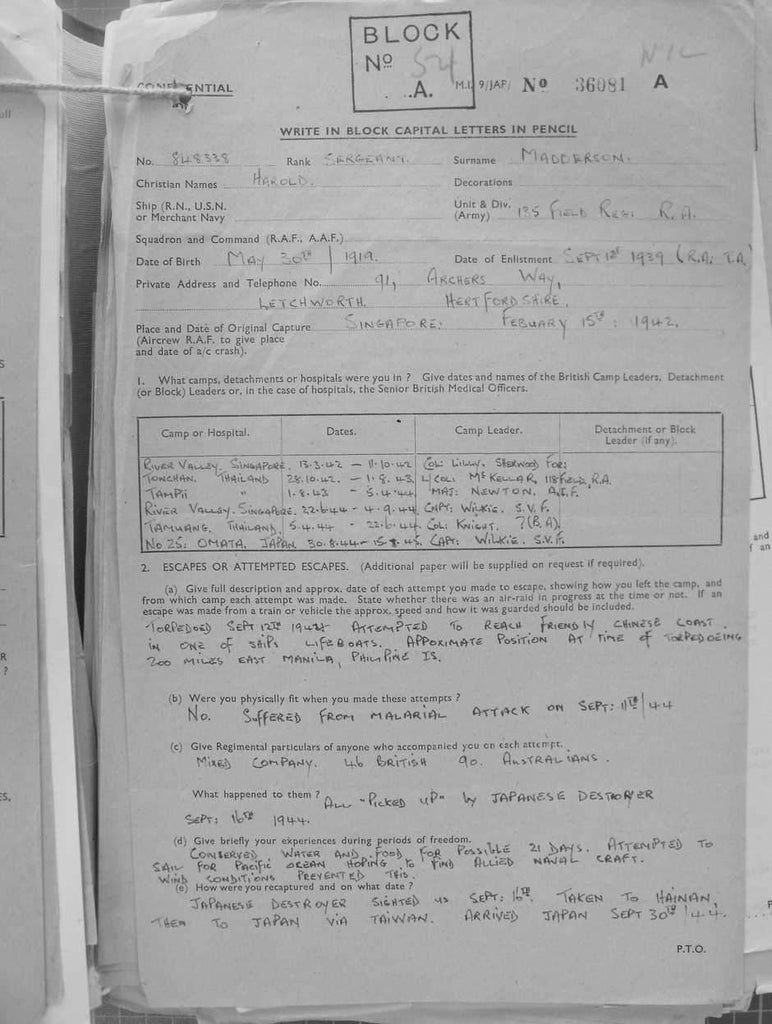 BLOCK
Nº 54
.A.
NIL
CONFIDENTIAL
M.I. 9/JAP/ Nº 36081 A
WRITE IN BLOCK CAPITAL LETTERS IN PENCIL
No. 848338 Rank SERGEANT. Surname MADDERSON.
Christian Names HAROLD. Decorations
Ship (R.N., U.S.N. or Merchant Navy
Unit & Div. (Army) 135 FIELD REG: R.A.
Squadron and Command (R.A.F., A.A.F.)
Date of Birth MAY 30TH / 1919. Date of Enlistment SEPT 1ST 1939 (R.A. T.A.)
Private Address and Telephone No. 91, ARCHERS WAY,
LETCHWORTH. HERTFORDSHIRE.
Place and Date of Original Capture SINGAPORE: FEBUARY 15TH : 1942.
(Aircrew R.A.F. to give place
and date of a/c crash).
1. What camps, detachments or hospitals were you in ? Give dates and names of the British Camp Leaders, Detachment
(or Block) Leaders or, in the case of hospitals, the Senior British Medical Officers.
Camp or Hospital. Dates. Camp Leader. Detachment or Block Leader (if any).
RIVER VALLEY. SINGAPORE. 13.3.42 - 11.10.42 COL: LILLY. SHERWOOD FOR:
TONCHAN. THAILAND 28.10.42. - 1.8.43 L/COL: McKELLAR, 118 FIELD, R.A.
TAMPII " 1.8.43 - 5.4.44. MAJ: NEWTON. A.I.F.
RIVER VALLEY. SINGAPORE. 22.6.44 - 4.9.44 CAPT: WILKIE. S.V.F.
TAMUANG. THAILAND. 5.4.44 - 22.6.44 COL: KNIGHT. ?(B.A)
No 25: OMATA. JAPAN. 30.8.44 - 15.8.45. CAPT: WILKIE. S.V.F.
2. ESCAPES OR ATTEMPTED ESCAPES. (Additional paper will be supplied on request if required).
(a) Give full description and approx. date of each attempt you made to escape, showing how you left the camp, and
from which camp each attempt was made. State whether there was an air-raid in progress at the time or not. If an
escape was made from a train or vehicle the approx. speed and how it was guarded should be included.
TORPEDOED SEPT 12TH 1944 ATTEMPTED TO REACH FRIENDLY CHINESE COAST.
IN ONE OF SHIPS LIFEBOATS. APPROXIMATE POSITION AT TIME OF TORPEDOEING
200 MILES EAST MANILA, PHILIPINE IS.
(b) Were you physically fit when you made these attempts ?
No. SUFFERED FROM MALARIAL ATTACK ON SEPT: 11TH / 44
(c) Give Regimental particulars of anyone who accompanied you on each attempt.
MIXED COMPANY. 46 BRITISH 90. AUSTRALIANS.
What happened to them ? ALL "PICKED UP" by JAPANESE DESTROYER
SEPT: 16TH 1944.
(d) Give briefly your experiences during periods of freedom.
CONSERVED WATER AND FOOD FOR POSSIBLE 21 DAYS. ATTEMPTED TO
SAIL FOR PACIFIC OCEAN HOPING TO FIND ALLIED NAVAL CRAFT.
WIND CONDITIONS PREVENTED THIS.
(e) How were you recaptured and on what date ?
JAPANESE DESTROYER SIGHTED US SEPT: 16TH. TAKEN TO HAINAN,
THEN TO JAPAN VIA TAIWAN. ARRIVED JAPAN SEPT 30TH / 44.
P.T.O.